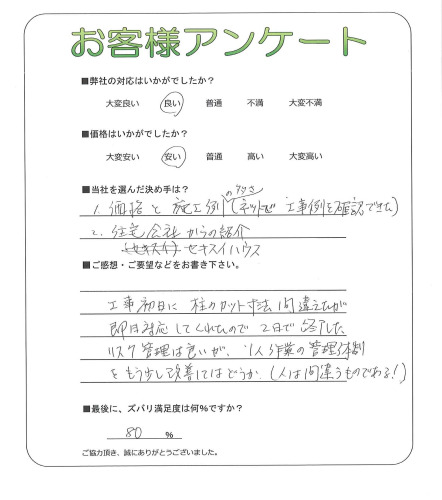 お客様アンケート
■弊社の対応はいかがでしたか?
大変良い 良い 普通 不満 大変不満
■価格はいかがでしたか?
大変安い 安い 普通 高い 大変高い
■当社を選んだ決め手は?
1. 価格と施工例の多さ(ネットで工事例を確認できた)
2. 住宅会社からの紹介
セキスイハウス
■ご感想・ご要望などをお書き下さい。
工事初日に柱のカット寸法間違えたが
即日対応してくれたので2日で完了した
リスク管理は良いが、1人作業の管理体制
をもう少し改善してはどうか(人は間違うものである!)
■最後に、ズバリ満足度は何%ですか?
80 %
ご協力頂き、誠にありがとうございました。